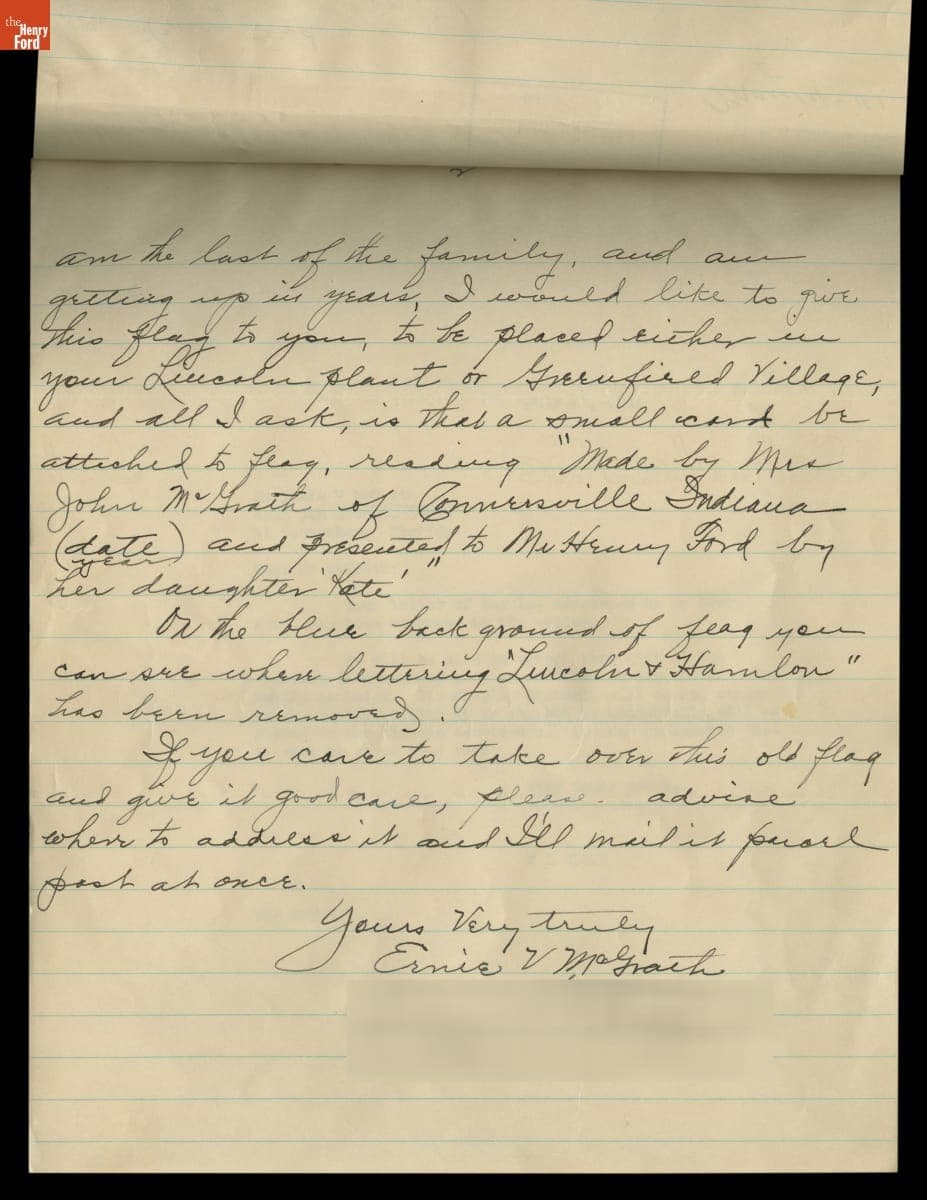 the
Henry
Ford
2
am the last of the family, and am
getting up in years, I would like to give
this flag to you, to be placed either in
your Lincoln plant or Greenfield Village,
and all I ask, is that a small card be
attached to flag, reading "Made by Mrs
John McGrath of Connersville Indiana
(date) and presented to Mr Henry Ford by
year
her daughter 'Kate'"
On the blue back ground of flag you
can see where lettering "Lincoln & Hamlon"
has been removed.
If you care to take over this old flag
and give it good care, please. advise
where to address it and I'll mail it parcel
post at once.
Yours Very truly
Ernie V McGrath